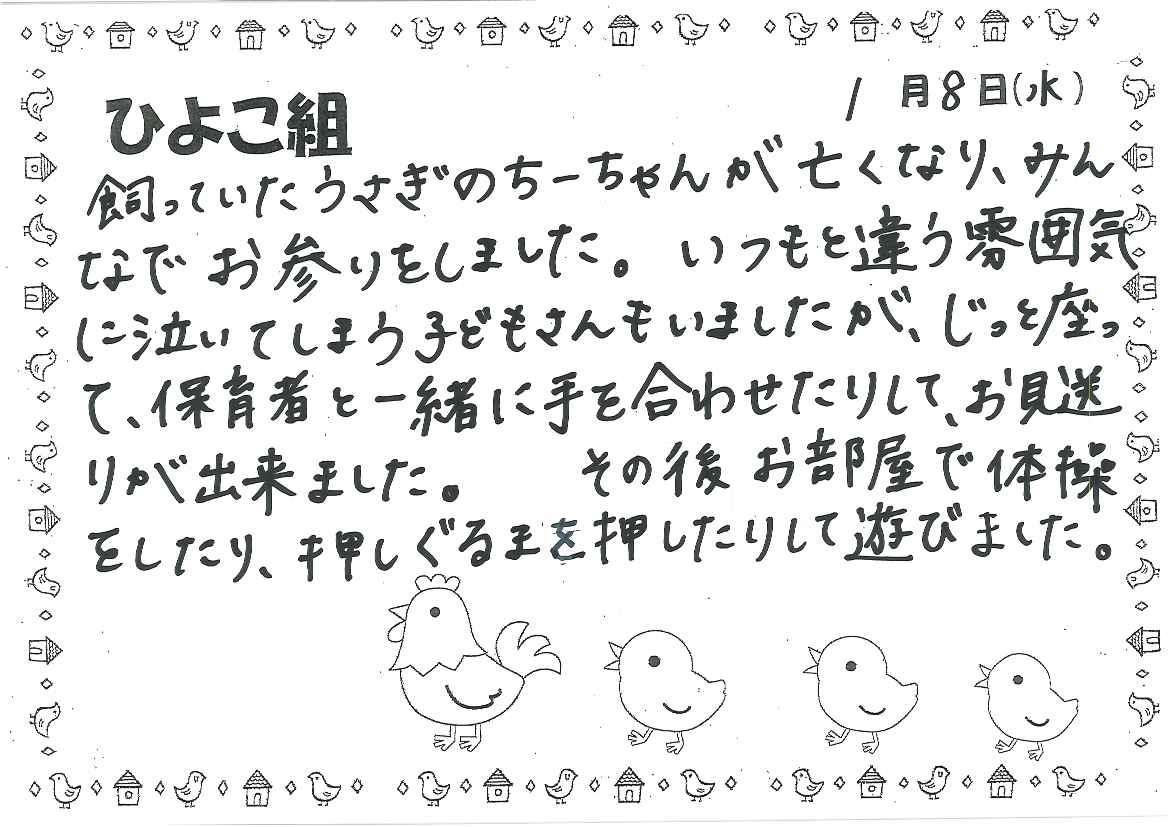 ひよこ組
1月8日(水)
飼っていたうさぎのちーちゃんが亡くなり、みん
なでお参りをしました。 いつもと違う雰囲気
に泣いてしまう子どもさんもいましたが、じっと座っ
て、保育者と一緒に手を合わせたりして、お見送
りが出来ました。 その後お部屋で体操
をしたり、押しぐるまを押したりして遊びました。